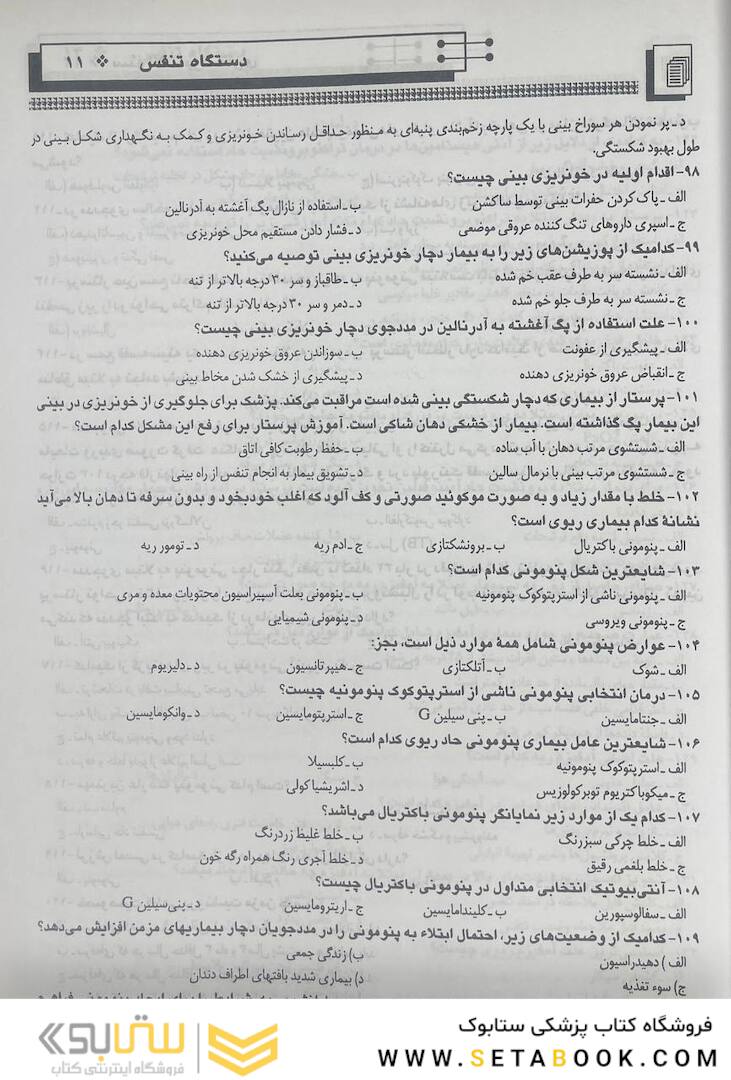 دستگاه تنفس ❖ ۱۱
د ـ پر نمودن هر سوراخ بینی با یک پارچه زخم‌بندی پنبه‌ای به منظور حداقل رساندن خونریزی و کمک به نگهداری شکل بینی در
طول بهبود شکستگی.
۹۸- اقدام اولیه در خونریزی بینی چیست؟
الف ـ پاک کردن حفرات بینی توسط ساکشن ب ـ استفاده از نازال پگ آغشته به آدرنالین
ج ـ اسپری داروهای تنگ کننده عروقی موضعی د ـ فشار دادن مستقیم محل خونریزی
۹۹- کدامیک از پوزیشن‌های زیر را به بیمار دچار خونریزی بینی توصیه می‌کنید؟
الف ـ نشسته سر به طرف عقب خم شده ب ـ طاقباز و سر ۳۰ درجه بالاتر از تنه
ج ـ نشسته سر به طرف جلو خم شده د ـ دمر و سر ۳۰ درجه بالاتر از تنه
۱۰۰- علت استفاده از پگ آغشته به آدرنالین در مددجوی دچار خونریزی بینی چیست؟
الف ـ پیشگیری از عفونت ب ـ سوزاندن عروق خونریزی دهنده
ج ـ انقباض عروق خونریزی دهنده د ـ پیشگیری از خشک شدن مخاط بینی
۱۰۱- پرستار از بیماری که دچار شکستگی بینی شده است مراقبت می‌کند. پزشک برای جلوگیری از خونریزی در بینی
این بیمار پگ گذاشته است. بیمار از خشکی دهان شاکی است. آموزش پرستار برای رفع این مشکل کدام است؟
الف ـ شستشوی مرتب دهان با آب ساده ب ـ حفظ رطوبت کافی اتاق
ج ـ شستشوی مرتب بینی با نرمال سالین د ـ تشویق بیمار به انجام تنفس از راه بینی
۱۰۲- خلط با مقدار زیاد و به صورت موکوئید صورتی و کف آلود که اغلب خودبخود و بدون سرفه تا دهان بالا می‌آید
نشانهٔ کدام بیماری ریوی است؟
الف ـ پنومونی باکتریال ب ـ برونشکتازی ج ـ ادم ریه د ـ تومور ریه
۱۰۳- شایعترین شکل پنومونی کدام است؟
الف ـ پنومونی ناشی از استرپتوکوک پنومونیه ب ـ پنومونی بعلت آسپیراسیون محتویات معده و مری
ج ـ پنومونی ویروسی د ـ پنومونی شیمیایی
۱۰۴- عوارض پنومونی شامل همهٔ موارد ذیل است، بجز:
الف ـ شوک ب ـ آتلکتازی ج ـ هیپرتانسیون د ـ دلیریوم
۱۰۵- درمان انتخابی پنومونی ناشی از استرپتوکوک پنومونیه چیست؟
الف ـ جنتامایسین ب ـ پنی سیلین G ج ـ استرپتومایسین د ـ وانکومایسین
۱۰۶- شایعترین عامل بیماری پنومونی حاد ریوی کدام است؟
الف ـ استرپتوکوک پنومونیه ب ـ کلبسیلا
ج ـ میکوباکتریوم توبرکولوزیس د ـ اشریشیا کولی
۱۰۷- کدام یک از موارد زیر نمایانگر پنومونی باکتریال می‌باشد؟
الف ـ خلط چرکی سبزرنگ ب ـ خلط غلیظ زردرنگ
ج ـ خلط بلغمی رقیق د ـ خلط آجری رنگ همراه رگه خون
۱۰۸- آنتی‌بیوتیک انتخابی متداول در پنومونی باکتریال چیست؟
الف ـ سفالوسپورین ب ـ کلیندامایسین ج ـ اریترومایسین د ـ پنی‌سیلین G
۱۰۹- کدامیک از وضعیت‌های زیر، احتمال ابتلاء به پنومونی را در مددجویان دچار بیماریهای مزمن افزایش می‌دهد؟
الف ) دهیدراسیون ب) زندگی جمعی
ج) سوء تغذیه د) بیماری شدید بافتهای اطراف دندان
فروشگاه کتاب پزشکی ستابوک
WWW.SETABOOK.COM
ستابوک
فروشگاه اینترنتی کتاب